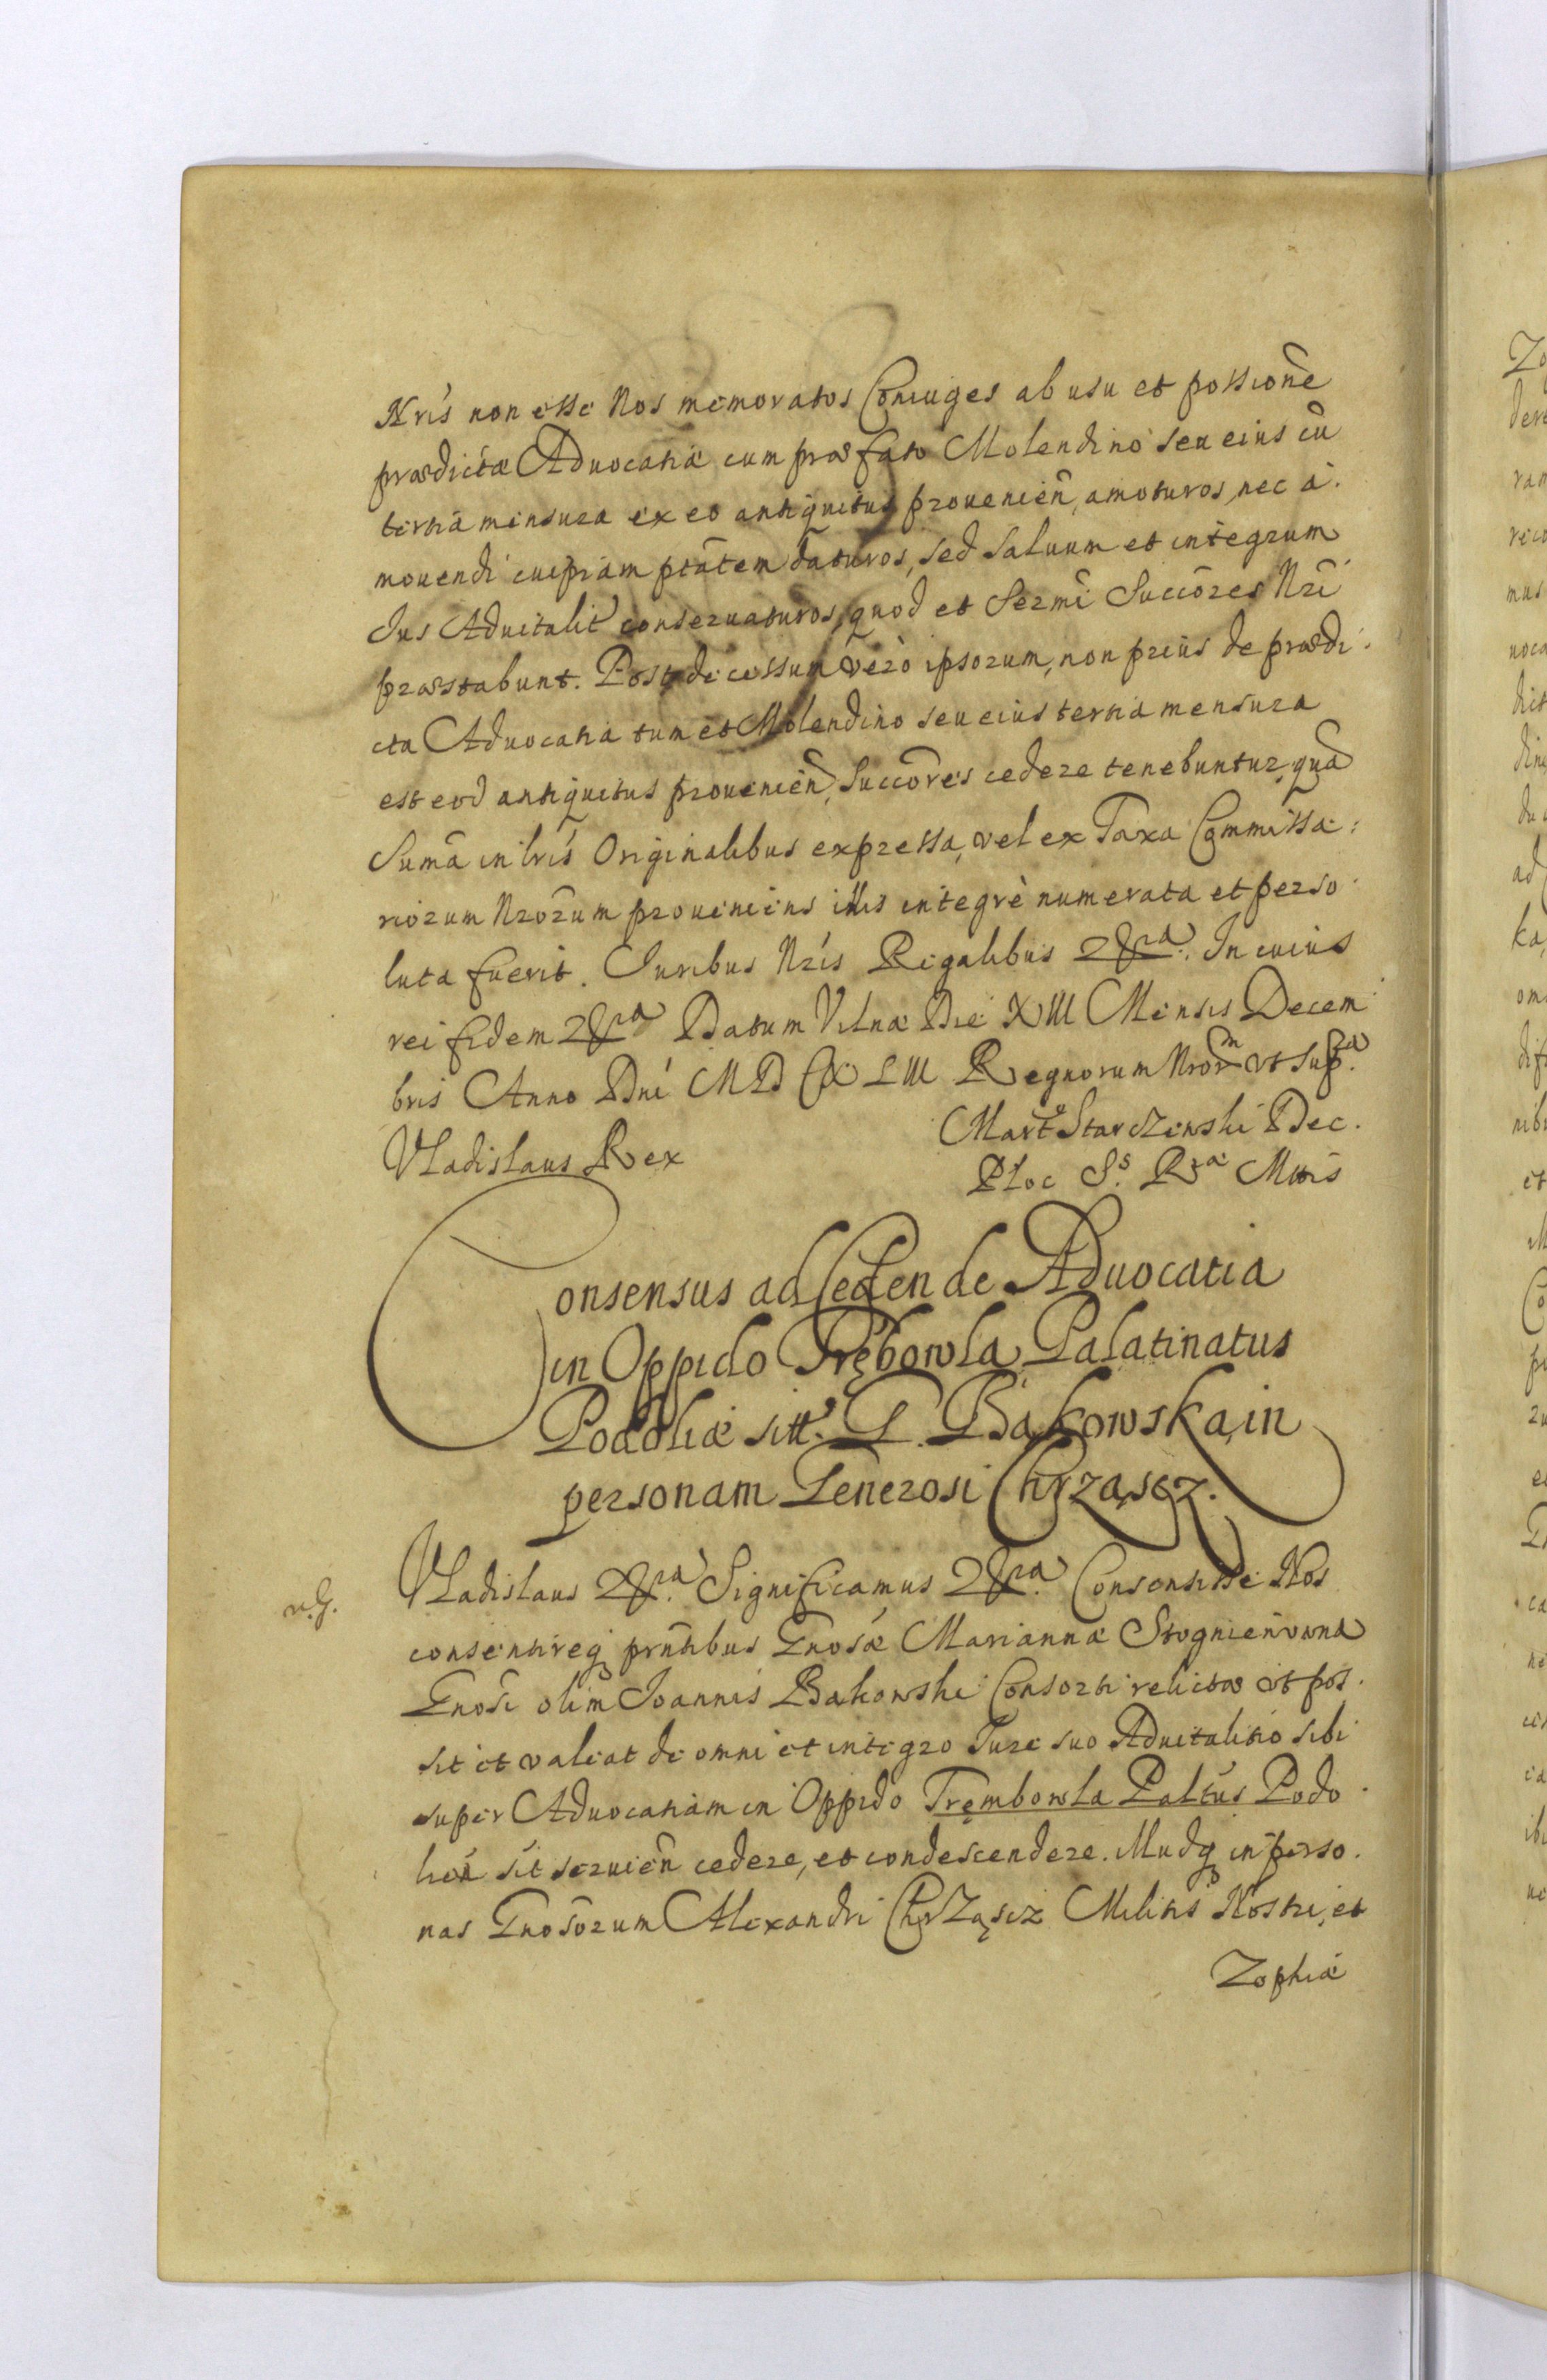 Nris non esse Nos memoratos Coniuges ab usu et possione
prædictæ Aduocatiæ cum præfato Molendino seu eius cū
tertia mensura ex eo antiquitus prouenień, amoturos, nec a
mouendi cuipiam ptātem daturos, sed saluum et integrum
Ius Aduitalit conseruaturos, quod et Sermi Succōres Nri
præstabunt. Post decessum verò ipsorum, non prius de prædi
cta Aduocatia tum et Molendino seu eius tertia mensura
est eod antiquitus prouenień, Succores cedere tenebuntur, quā
Suma in lris Originalibus expressa, vel ex Taxa Commissa:
riorum Nrorum proueniens illis integrè numerata et perso
luta fuerit. Iuribus Nris Regalibus &ra. In cuius
rei fidem &ra Datum Vilnæ Die XIII Mensis Decem
bris Anno Dni MDCXLIII Regnorum Nrorm vt supra
Vladislaus Rex
Mart. Starczewski Dec.
Ploc S.s R.æ Mttis
Consensus ad ceden de Aduocatia
in Oppido Trębowla Palatinatus
Podoliæ sitt. G. Bąkowska, in
personam Generosi Chrząscz.
n. G.
Vladislaus &ra. Significamus &ra. Consensisse Nos
consentireq prntibus Gnosæ Mariannæ Stognieńowna
Gnosi olim Joannis Bakowski Consorti relictæ vt pos
sit et valeat de omni et integro Iure suo Aduitalitio sibi
super Aduocatiam in Oppido Trembowla Paltus Podo
lień sit seruień cedere, et condescendere. Illudq in perso
nas Gnosorum Alexandri Chrząscz Militis Nostri, et
Zophiæ